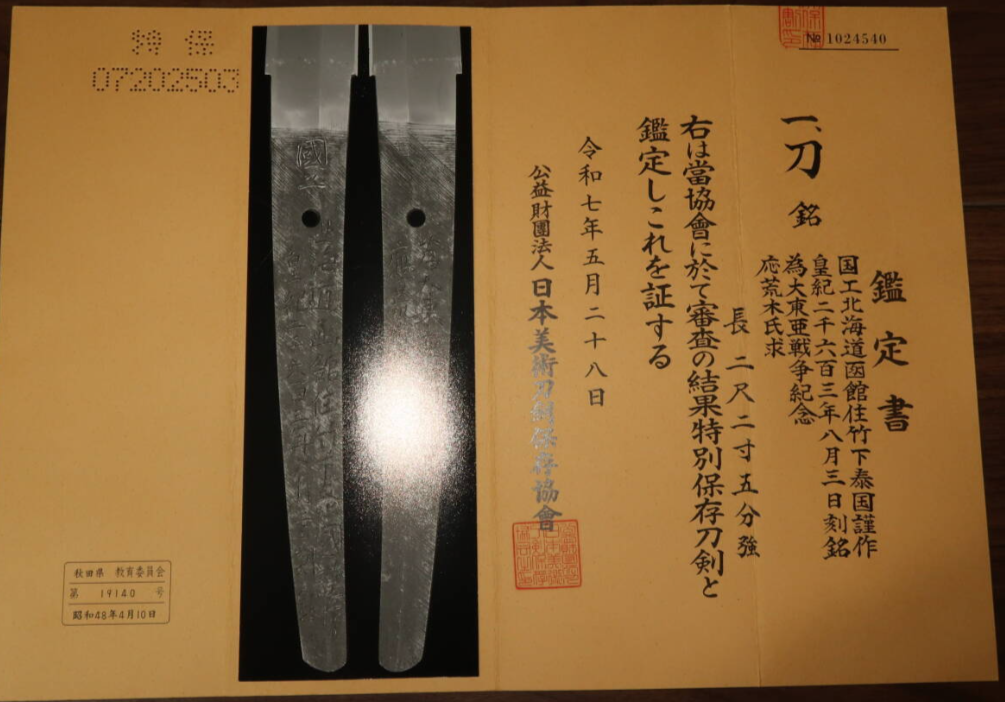 No 1024540
鑑定書
一、刀 銘
国工北海道函館住竹下泰国謹作
皇紀二千六百三年八月三日刻銘
為大東亜戦争紀念
応荒木氏求
長 二尺二寸五分強
右は當協會に於て審査の結果特別保存刀剣と
鑑定しこれを証する
令和七年五月二十八日
公益財團法人日本美術刀剣保存協會
特保
07202503
國工
秋田県 教育委員会
第 19140 号
昭和48年4月10日